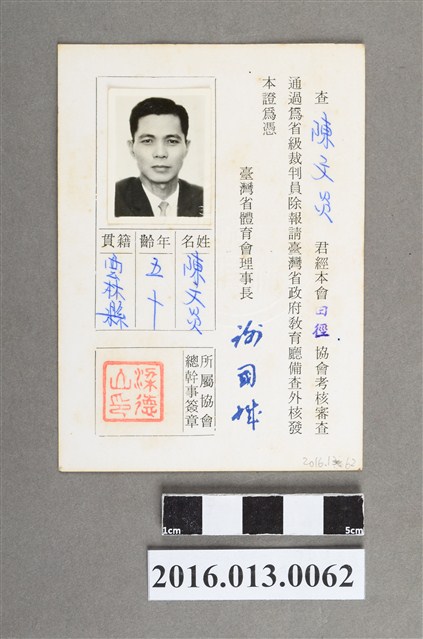 查 陳文炎 君經本會 田徑 協會考核審查
通過為省級裁判員除報請臺灣省政府教育廳備查外核發
本證為憑
臺灣省體育會理事長 謝國城
姓名 陳文炎
年齡 五十
籍貫 雲林縣
所屬協會
總幹事簽章
深德
山印
1cm
5cm
2016.013.0062